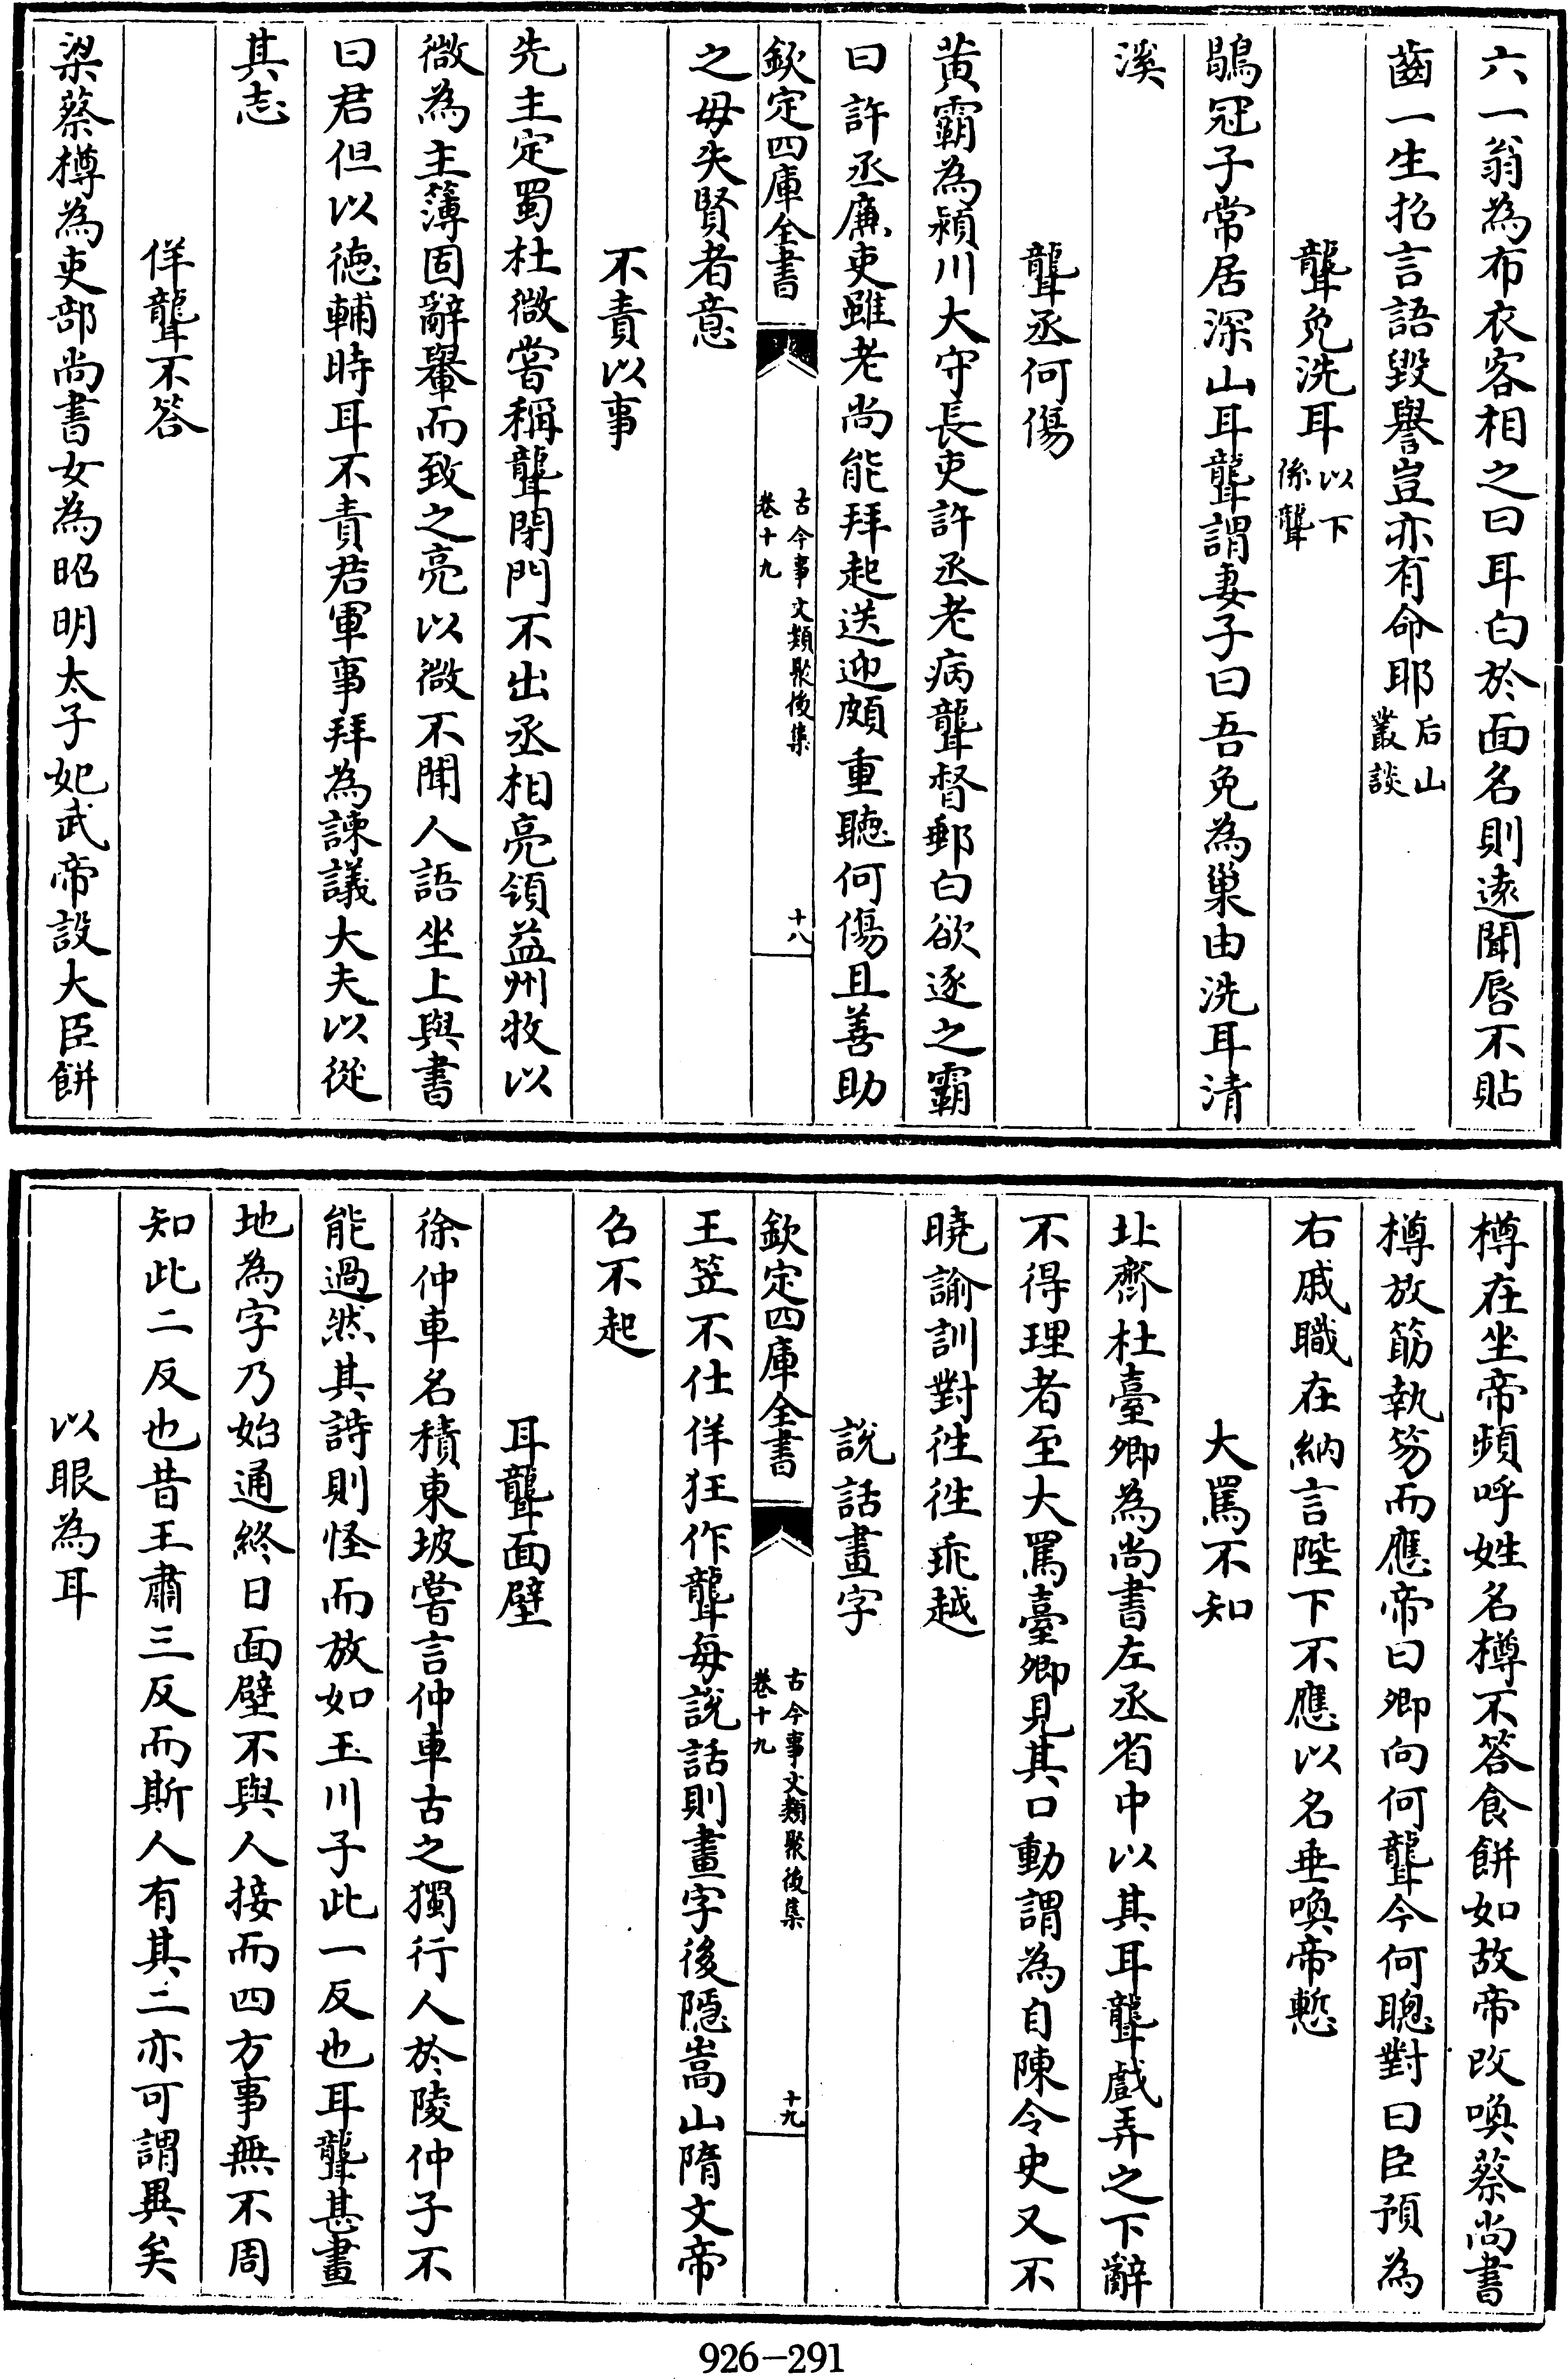 六一翁為布衣客相之曰耳白於面名則遠聞唇不貼
齒一生招言語毀譽豈亦有命耶后山叢談
聾免洗耳以下係聾
鶡冠子常居深山耳聾謂妻子曰吾免為巢由洗耳清
溪
聾丞何傷
黃霸為潁川大守長吏許丞老病聾督郵白欲逐之霸
曰許丞廉吏雖老尚能拜起送迎頗重聽何傷且善助
欽定四庫全書
古今事文類聚後集
卷十九
十八
之毋失賢者意
不責以事
先主定蜀杜微嘗稱聾閉門不出丞相亮領益州牧以
微為主簿固辭轝而致之亮以微不聞人語坐上與書
曰君但以德輔時耳不責君軍事拜為諫議大夫以從
其志
佯聾不答
梁蔡樽為吏部尚書女為昭明太子妃武帝設大臣餅
樽在坐帝頻呼姓名樽不答食餅如故帝改喚蔡尚書
樽放筯執笏而應帝曰卿向何聾今何聰對曰臣預為
右戚職在納言陛下不應以名垂喚帝慙
大罵不知
北齊杜臺卿為尚書左丞省中以其耳聾戲弄之下辭
不得理者至大罵臺卿見其口動謂為自陳令史又不
曉諭訓對徃徃乖越
說話畫字
欽定四庫全書
古今事文類聚後集
卷十九
十九
王笠不仕佯狂作聾每說話則畫字後隱嵩山隋文帝
召不起
耳聾面壁
徐仲車名積東坡嘗言仲車古之獨行人於陵仲子不
能過然其詩則怪而放如玉川子此一反也耳聾甚畫
地為字乃始通終日面壁不與人接而四方事無不周
知此二反也昔王肅三反而斯人有其二亦可謂異矣
以眼為耳
926-291